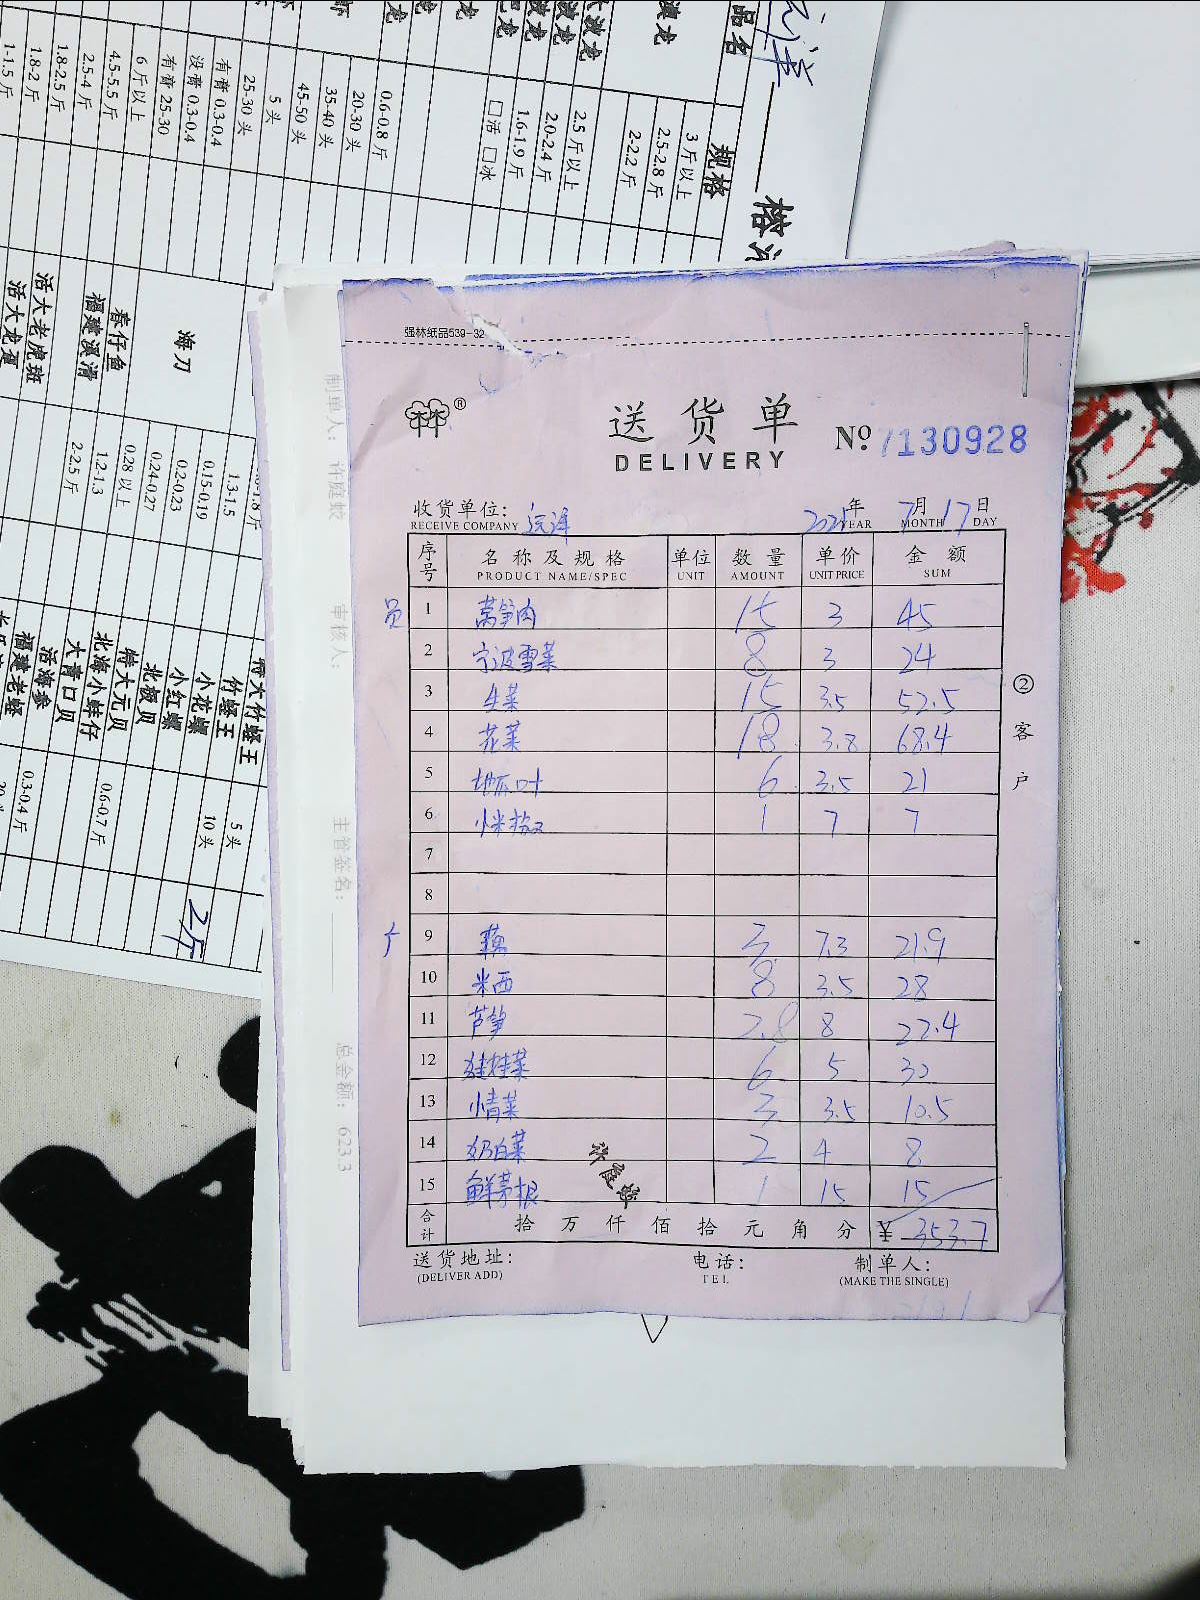 强林纸品539-32
®
送货单
DELIVERY
№ 7130928
收货单位:
RECEIVE COMPANY
2025年 7月 17日
YEAR MONTH DAY
序号 名称及规格 单位 数量 单价 金额
PRODUCT NAME/SPEC UNIT AMOUNT UNIT PRICE SUM
员 1 莴笋肉 15 3 45
2 宁波雪菜 8 3 24
3 生菜 15 3.5 52.5
4 花菜 18 3.8 68.4
5 地瓜叶 6 3.5 21
6 小米椒 1 7 7
7
8
9 藕 3 7.3 21.9
10 米西 8 3.5 28
11 芦笋 2.8 8 22.4
12 娃娃菜 6 5 30
13 小青菜 3 3.5 10.5
14 奶白菜 2 4 8
15 鲜茅根 1 15 15
许庭蛟
合计 拾万仟佰拾元角分 ¥ 353.7
送货地址: 电话: 制单人:
(DELIVER ADD) TEL (MAKE THE SINGLE)
②客户
制单人: 许庭蛟
审核人:
主管签名:
总金额: 6233
品名 规格
澳龙
3斤以上
2.5-2.8斤
2-2.2斤
波龙
2.5斤以上
2.0-2.4斤
1.6-1.9斤
□活 □冰
0.6-0.8斤
20-30头
35-40头
45-50头
5头
25-30头
有膏 0.3-0.4
没膏 0.3-0.4
有膏 25-30
6斤以上
4.5-5.5斤
2.5-4斤
1.8-2.5斤
1.8-2斤
1-1.5斤
海刀
春仔鱼
福建溪滑
活大老虎斑
活大龙趸
1.3-1.5
0.15-0.19
0.2-0.23
0.24-0.27
0.28以上
1.2-1.3
2-2.5斤
特大竹蛏王 5头
竹蛏王 10头
小花螺
小红螺 2斤
北极贝
特大元贝
北海小蚌仔
大青口贝 0.6-0.7斤
活海参
福建老蛏 0.3-0.4斤